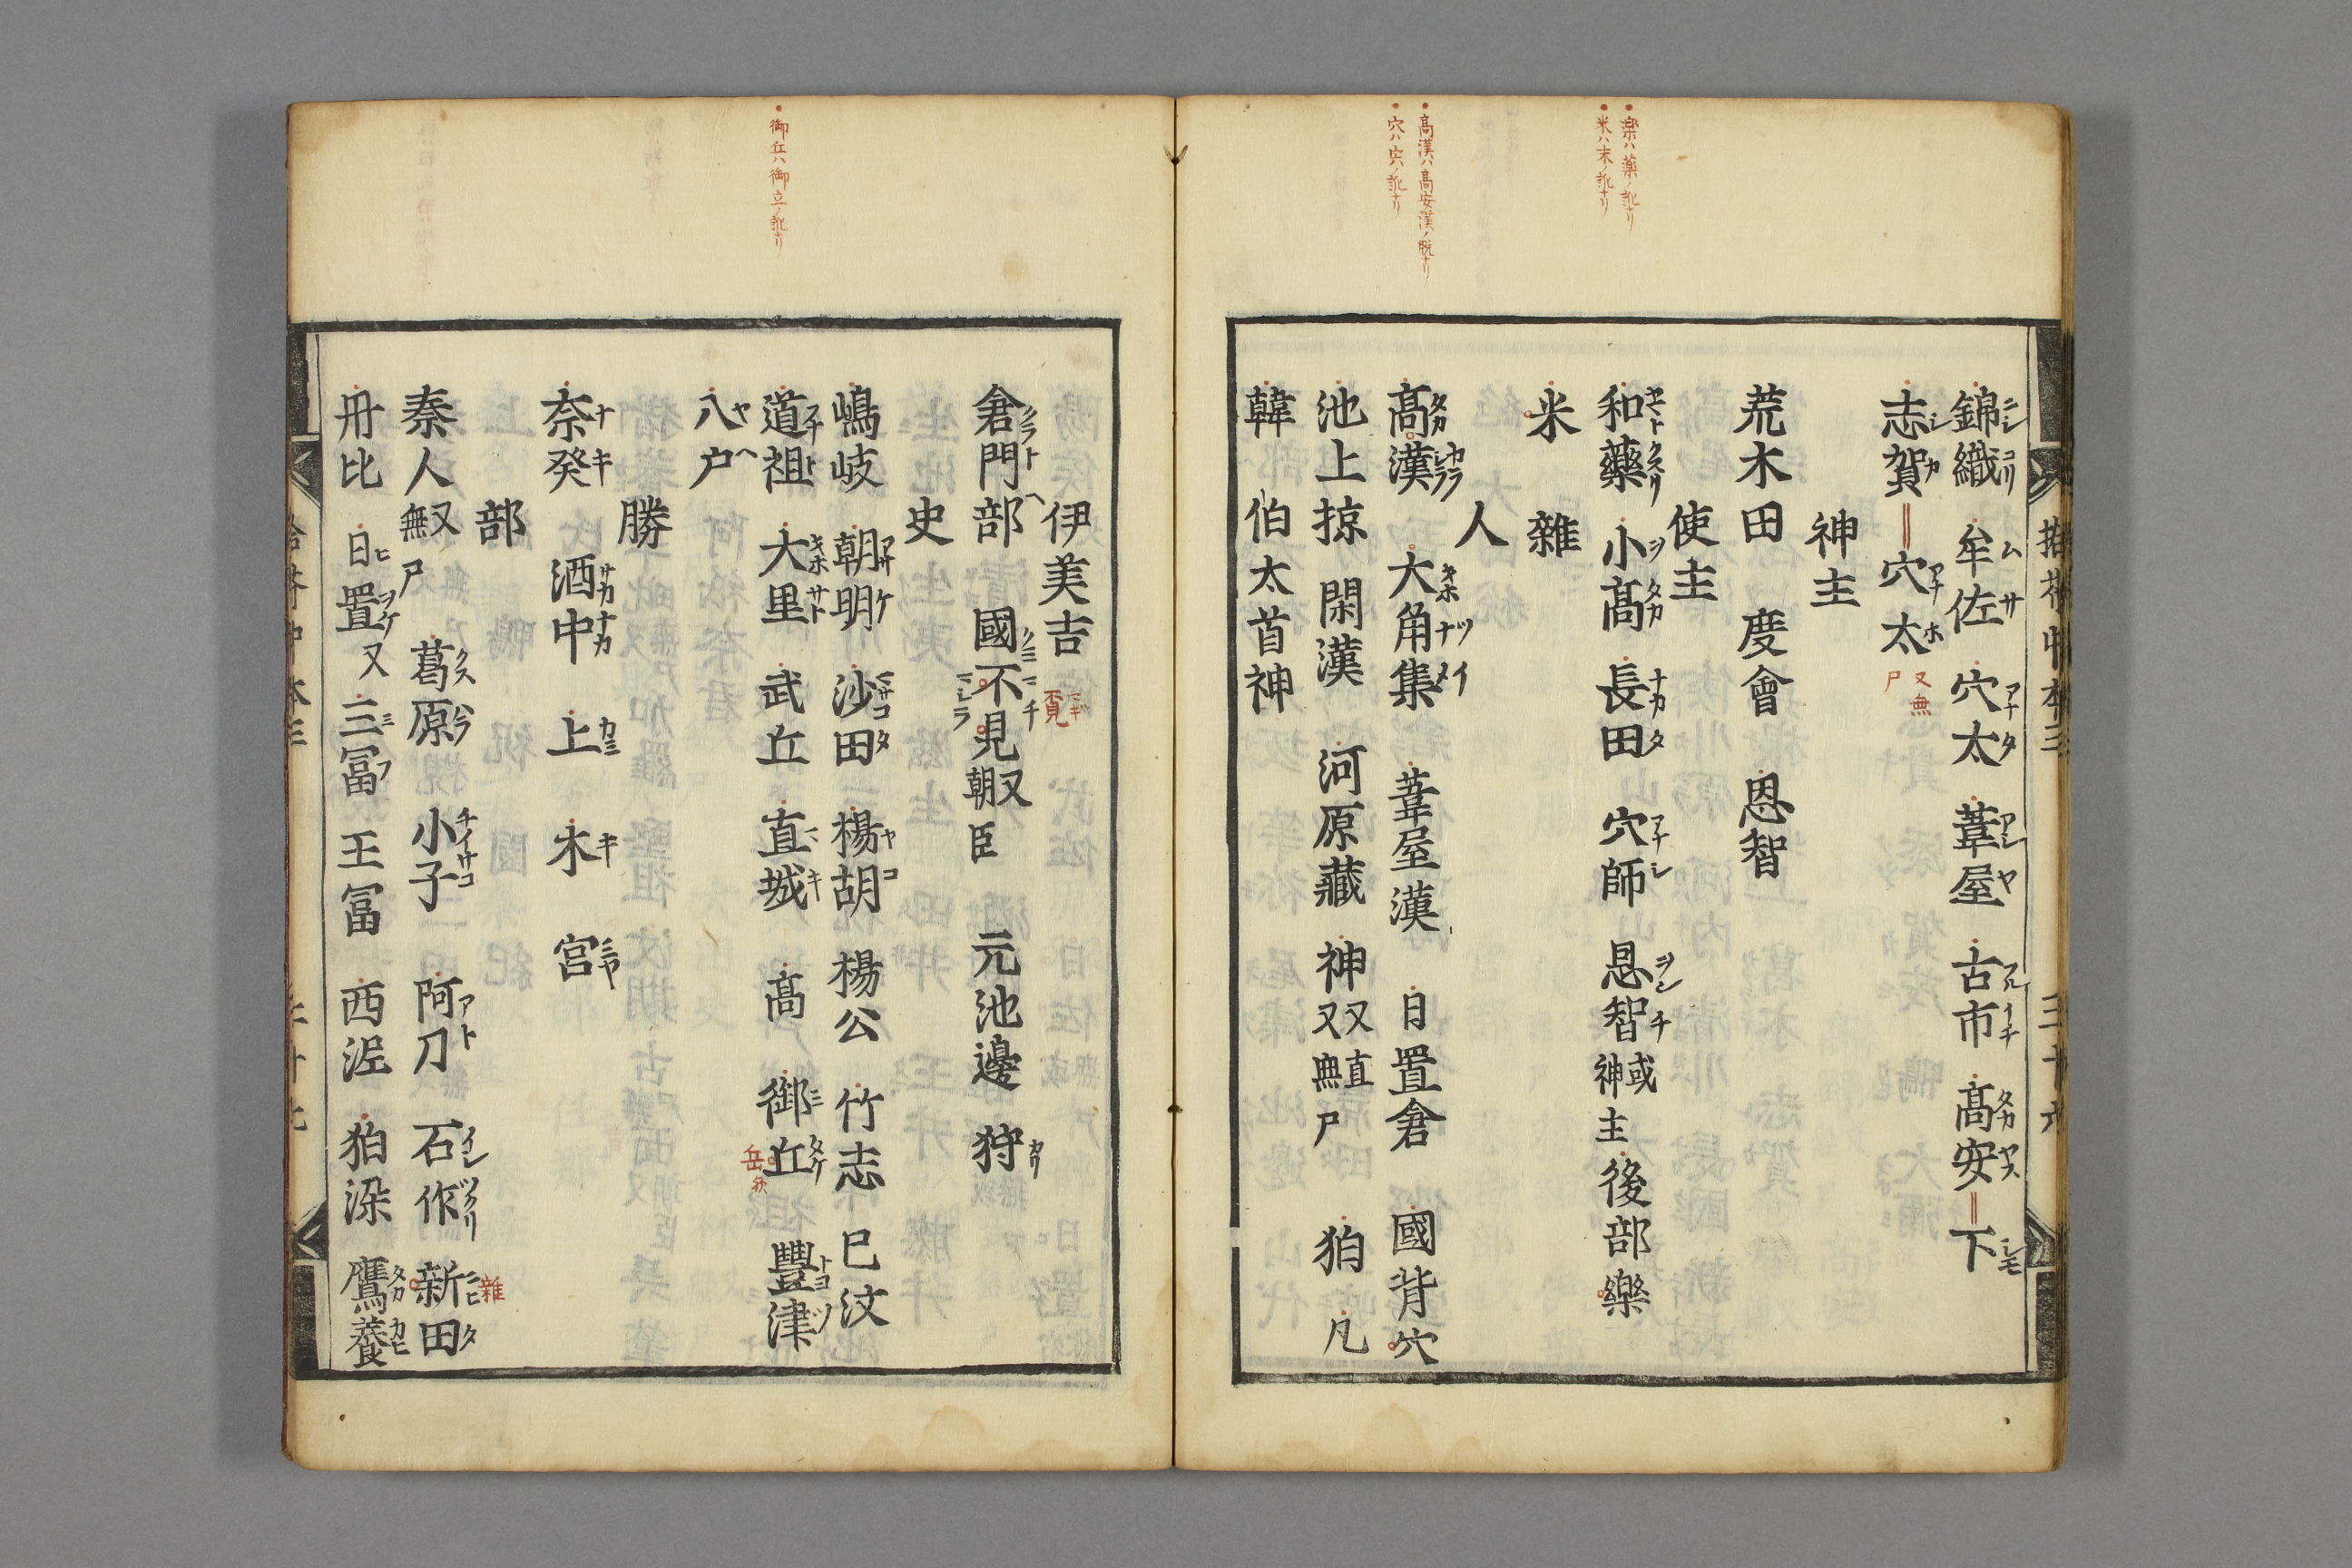 楽ハ薬ノ訛ナリ
米ハ末ノ訛ナリ
高漢ハ高安漢ノ脱ナリ
穴ハ宍ノ訛ナリ
錦織 牟佐 穴太 葦屋 古市 高安 下
志賀 穴太 又無尸
神主
荒木田 慶會 恩智
使主
和藥 小高 長田 穴師 恩智 或神主 後部樂
米 雜
人
高漢 大角集 葦屋漢 日置倉 國背穴
池上掠 閑漢 河原藏 神 又直又無尸 狛 凡
韓 伯太首神
御丘ハ御立ノ訛ナリ
伊美吉
倉門部 國不見 又朝臣 元池邊 狩
史
嶋岐 朝明 沙田 楊胡 楊公 竹志 巳汶
道祖 大里 武丘 直城 高 御丘 豐津
八戸
勝
奈癸 酒中 上 木 宮
部
秦人 又無尸 葛原 小子 阿刀 石作 新田
丹比 日置 又 三冨 王冨 西泥 狛染 鷹養